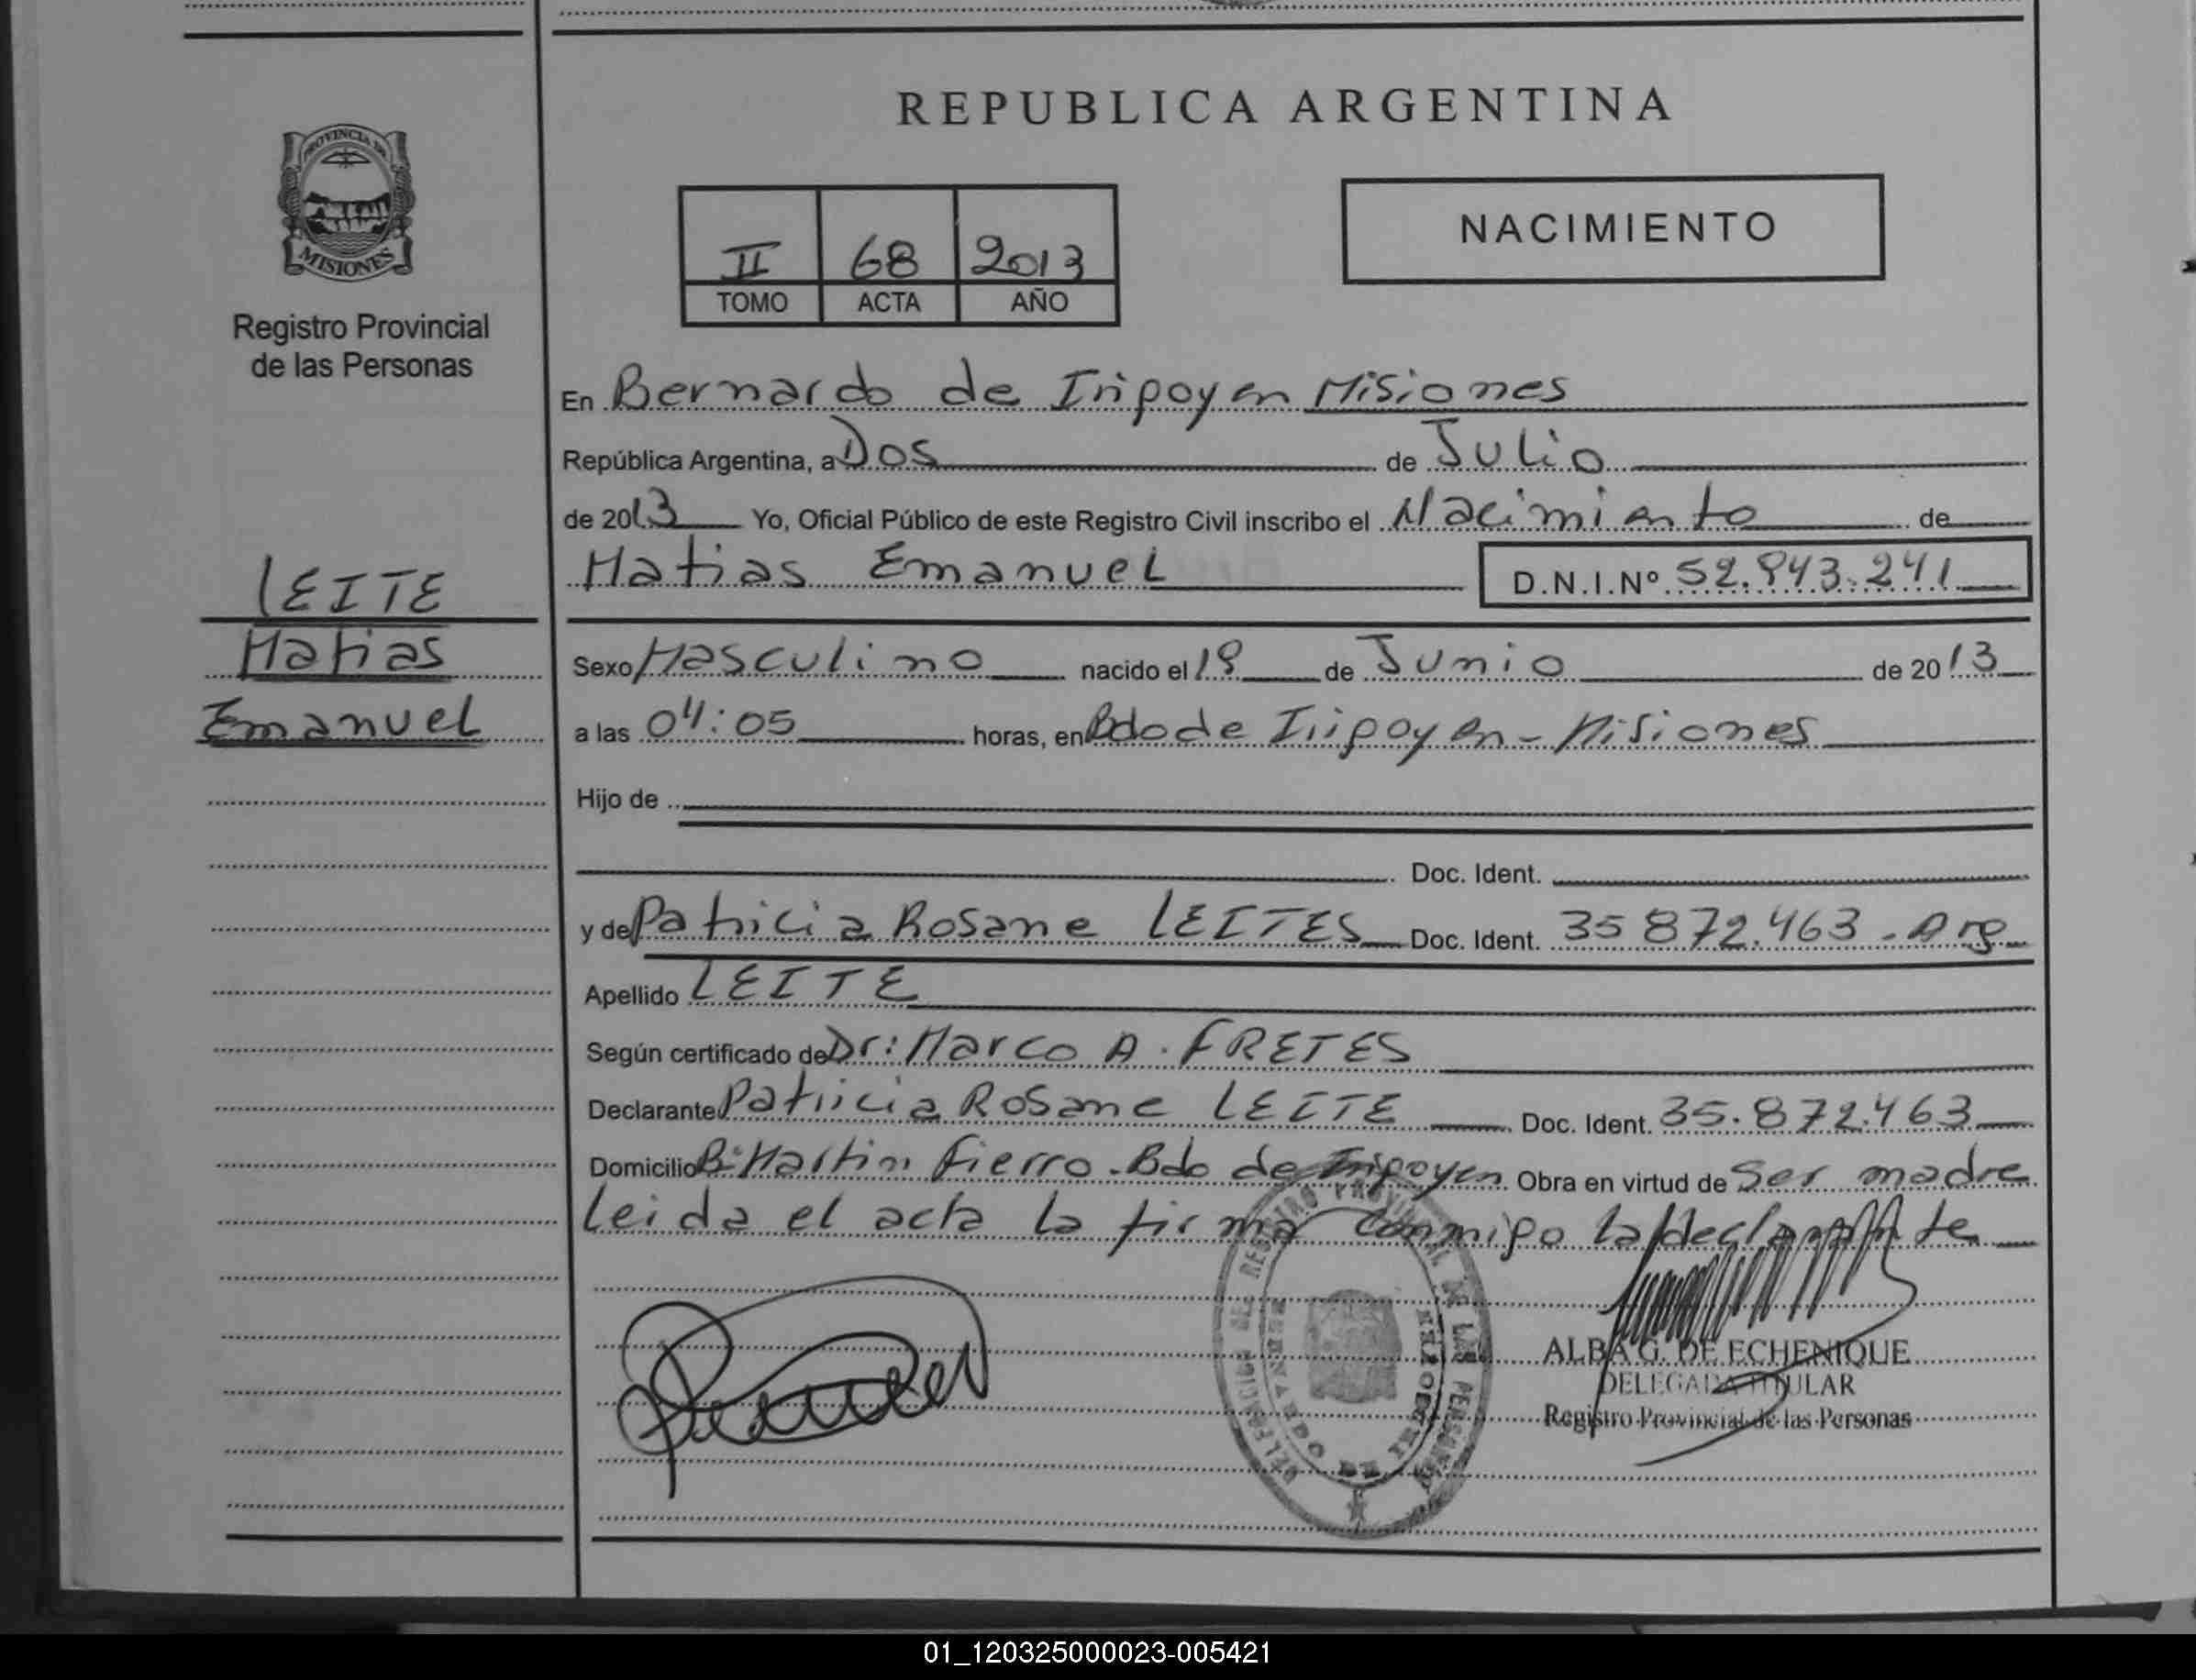 REPUBLICA ARGENTINA
PROVINCIA DE
MISIONES
Registro Provincial
de las Personas
II 68 2013
TOMO ACTA AÑO
NACIMIENTO
En Bernardo de Irigoyen Misiones
República Argentina, a Dos de Julio
de 2013 Yo, Oficial Público de este Registro Civil inscribo el Nacimiento de
Matias Emanuel D.N.I.Nº 52.943.241
LEITE
Matias
Emanuel
Sexo Masculino nacido el 19 de Junio de 2013
a las 04:05 horas, en Bdo de Irigoyen - Misiones
Hijo de
Doc. Ident.
y de Patricia Rosane LEITES Doc. Ident. 35 872.463 . Arg
Apellido LEITE
Según certificado de Dr: Marco A. FRETES
Declarante Patricia Rosane LEITE Doc. Ident. 35.872.463
Domicilio Bº Martin Fierro - Bdo de Irigoyen Obra en virtud de Ser madre
Leida el acta la firma conmigo la declarante
DELEGACION DEL REGISTRO PROVINCIAL DE LAS PERSONAS
BERNARDO DE IRIGOYEN
ALBA G. DE ECHENIQUE
DELEGADA TITULAR
Registro Provincial de las Personas
01_120325000023-005421